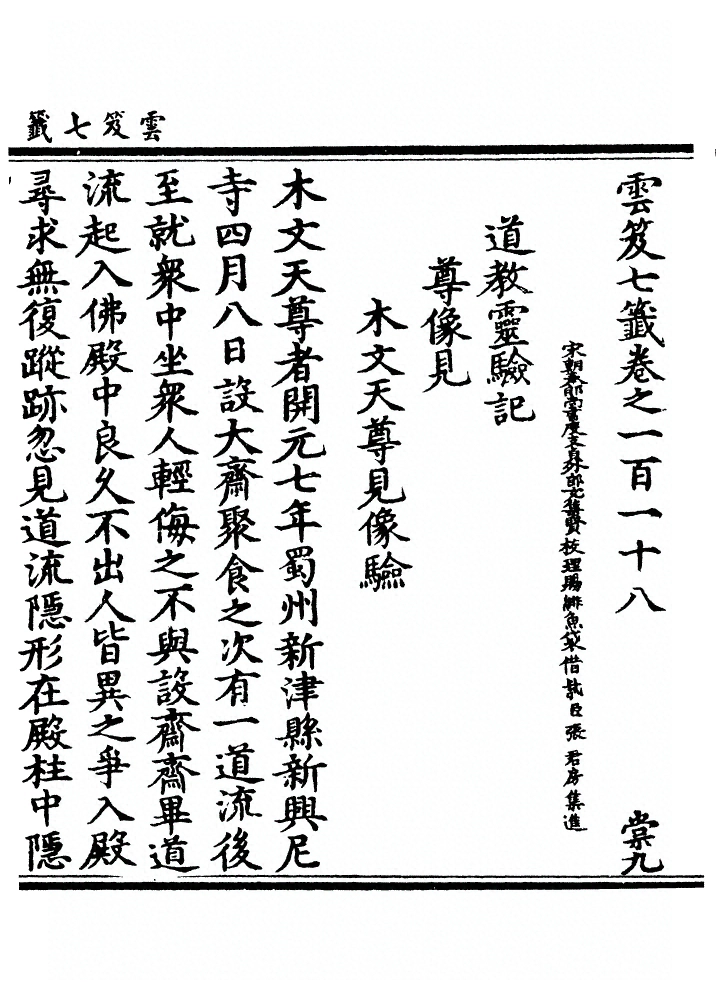 雲笈七籤
雲笈七籤卷之一百一十八 棠九
宋朝奉郎尚書度支員外郎充集賢校理賜緋魚袋借紫臣張君房集進
道教靈驗記
尊像見
木文天尊見像驗
木文天尊者開元七年蜀州新津縣新興尼
寺四月八日設大齋聚食之次有一道流後
至就衆中坐衆人輕侮之不與設齋齋畢道
流起入佛殿中良久不出人皆異之爭入殿
尋求無復蹤跡忽見道流隱形在殿柱中隱